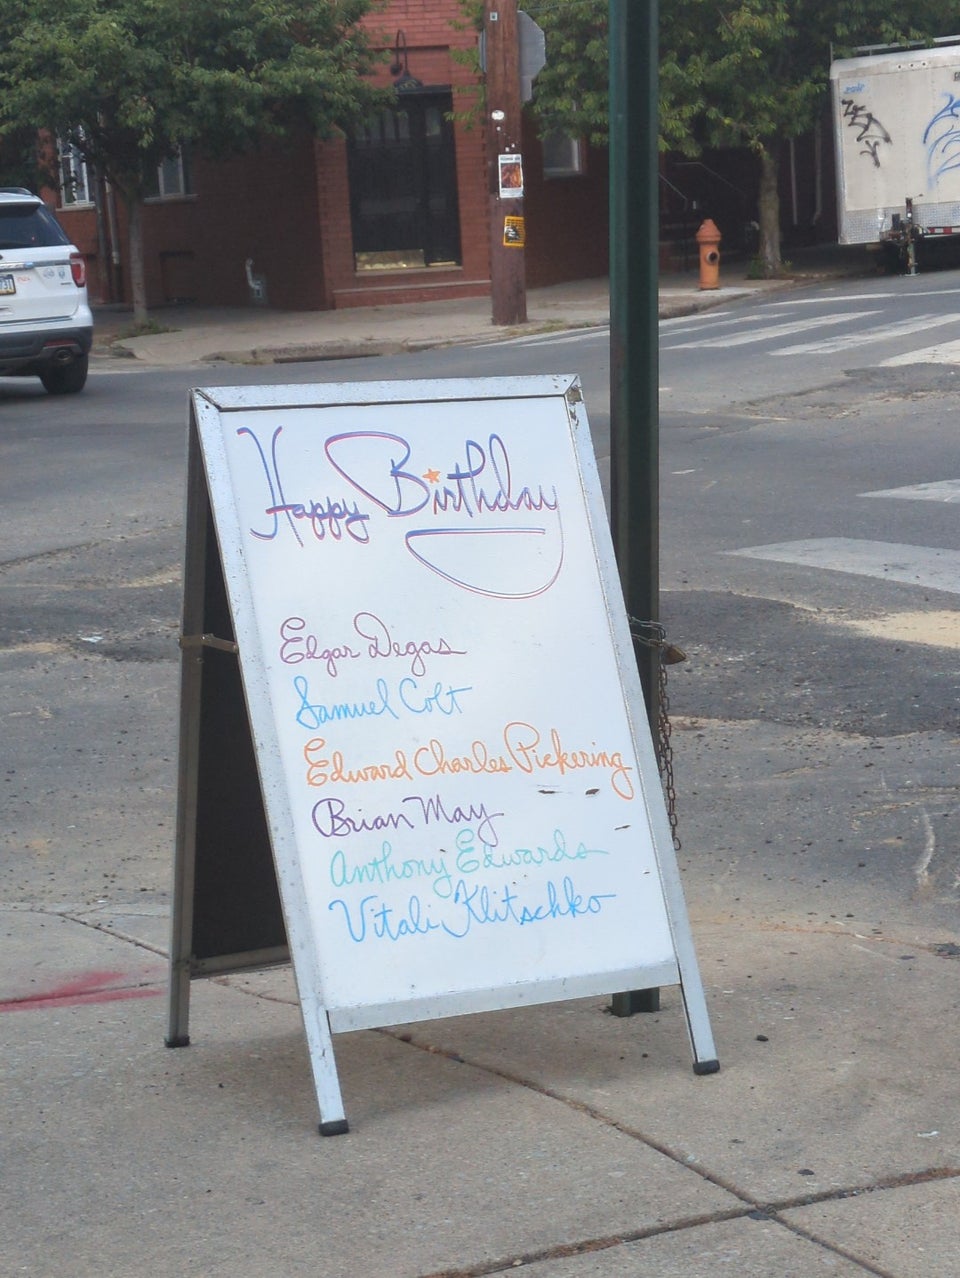 Happy Birthday
Edgar Degas
Samuel Colt
Edward Charles Pickering
Brian May
Anthony Edwards
Vitali Klitschko